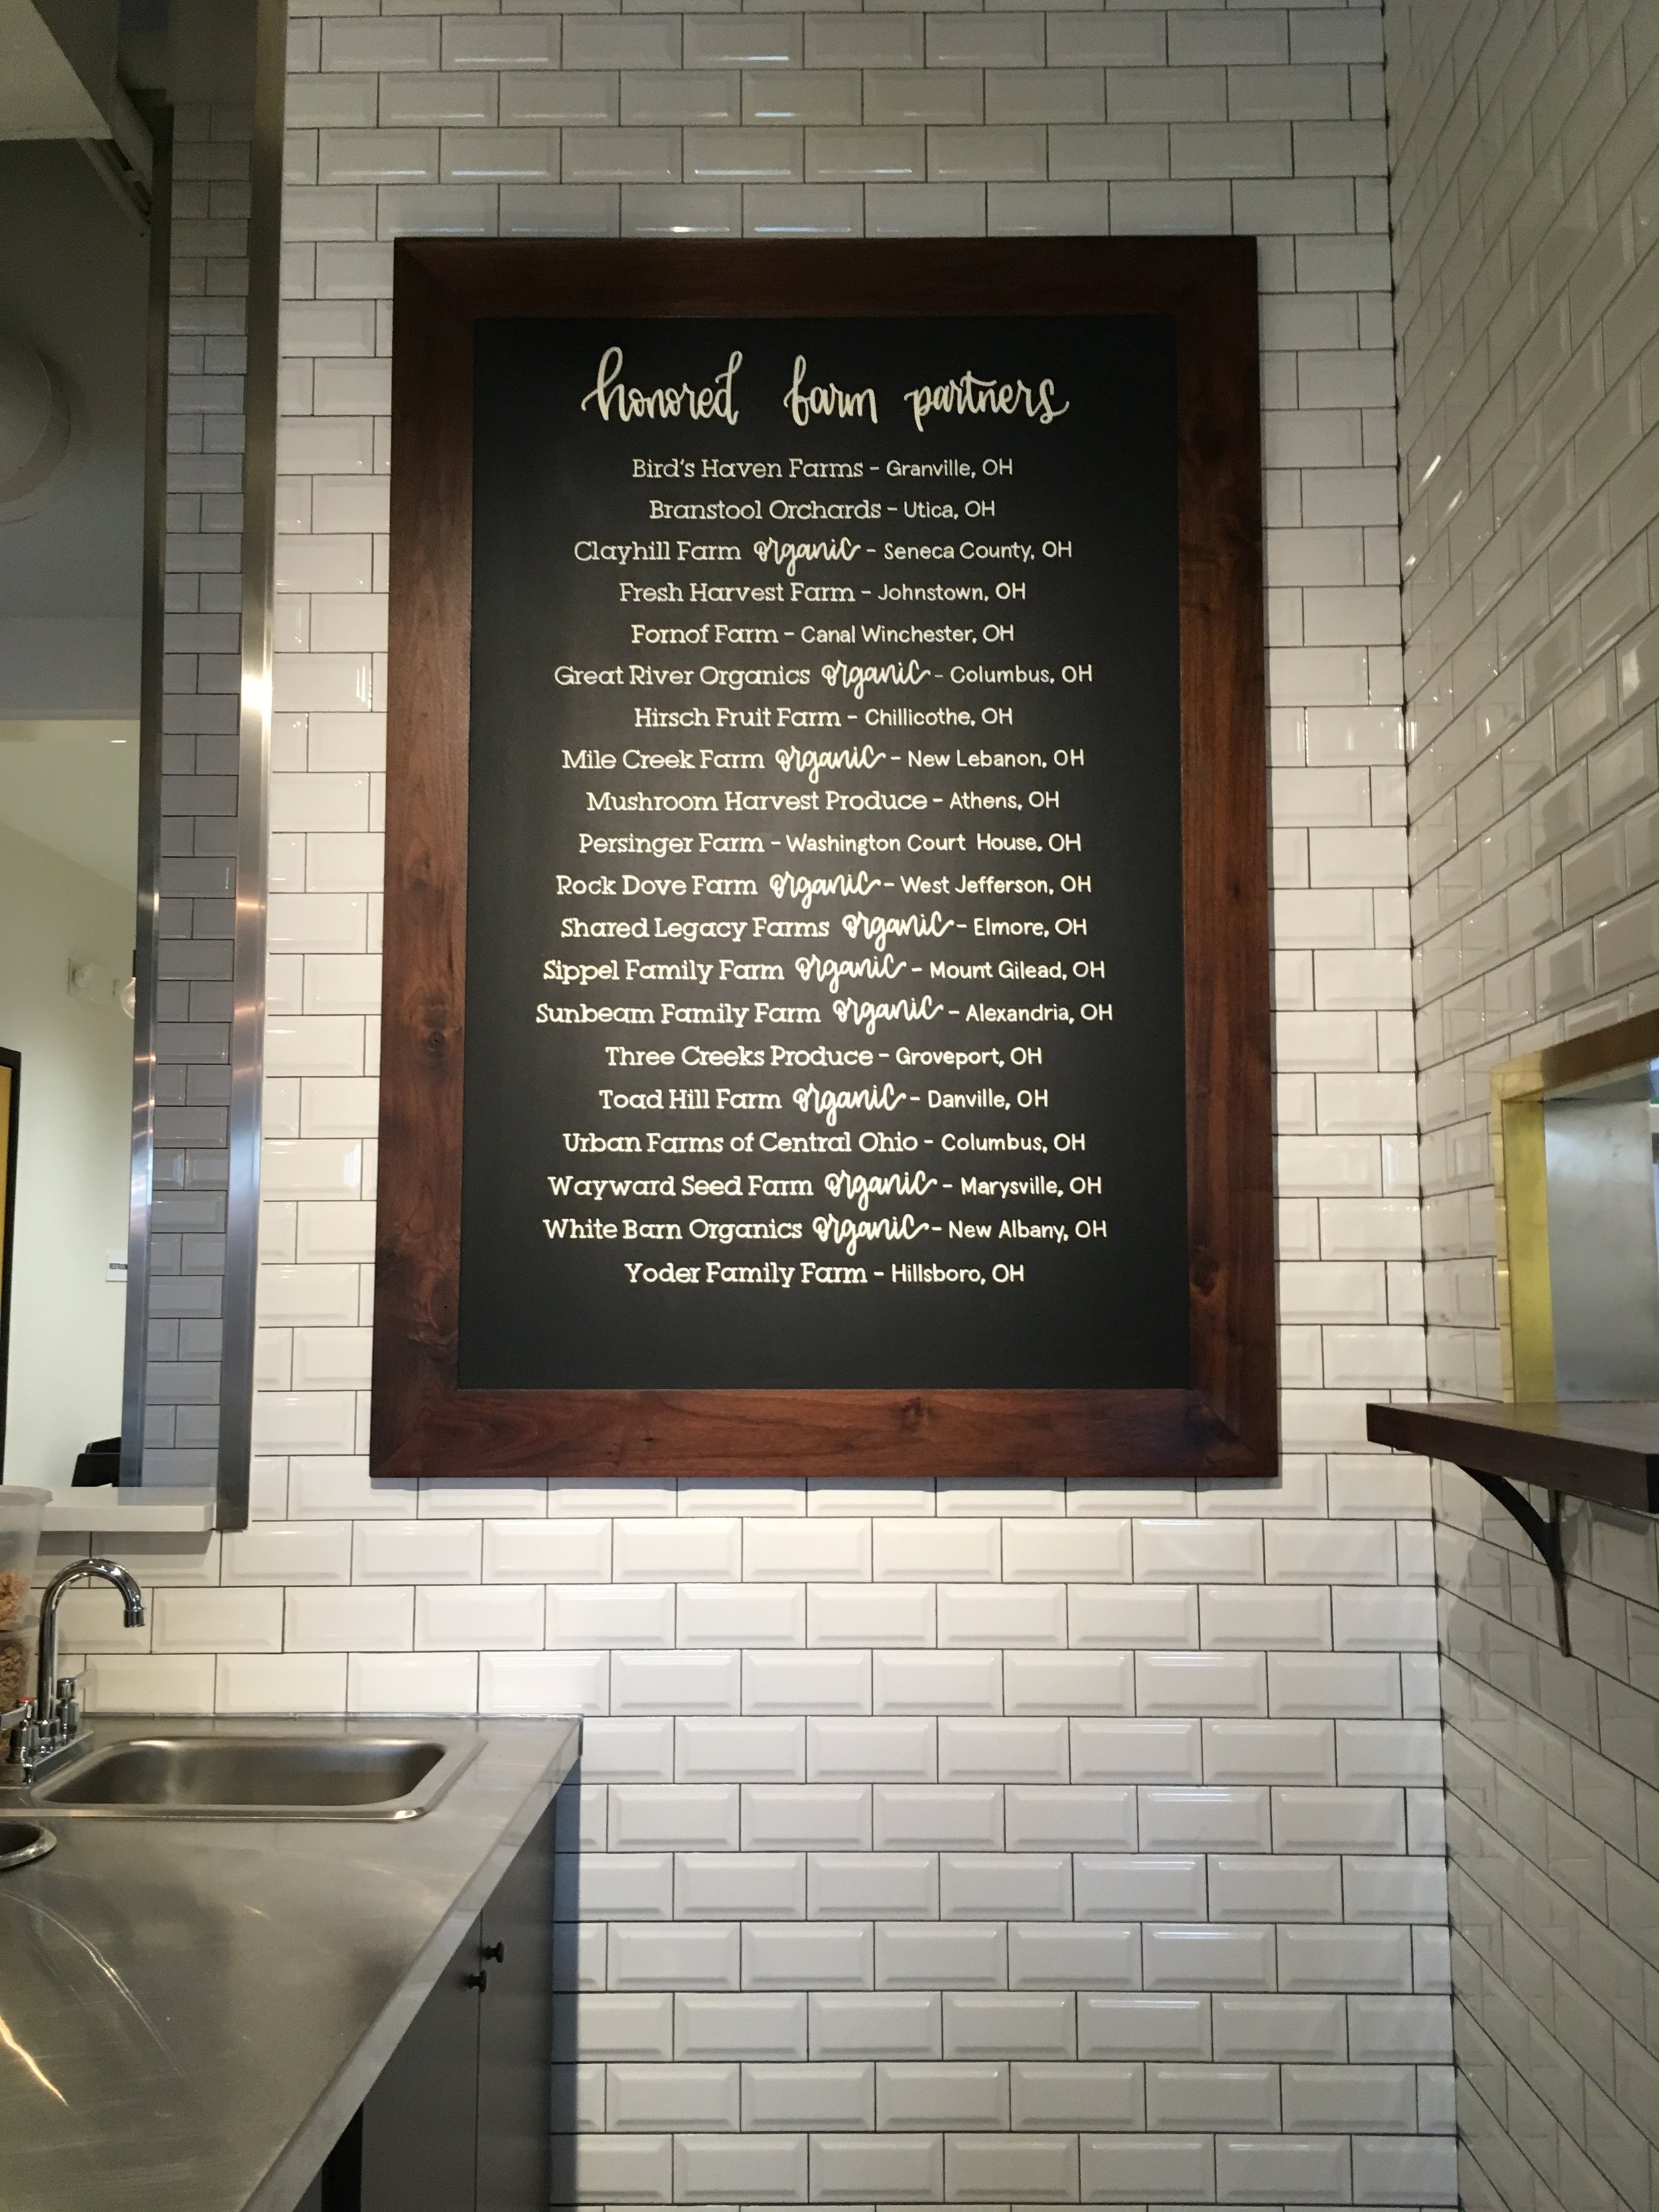 honored farm partners
Bird's Haven Farms - Granville, OH
Branstool Orchards - Utica, OH
Clayhill Farm organic - Seneca County, OH
Fresh Harvest Farm - Johnstown, OH
Fornof Farm - Canal Winchester, OH
Great River Organics organic - Columbus, OH
Hirsch Fruit Farm - Chillicothe, OH
Mile Creek Farm organic - New Lebanon, OH
Mushroom Harvest Produce - Athens, OH
Persinger Farm - Washington Court House, OH
Rock Dove Farm organic - West Jefferson, OH
Shared Legacy Farms organic - Elmore, OH
Sippel Family Farm organic - Mount Gilead, OH
Sunbeam Family Farm organic - Alexandria, OH
Three Creeks Produce - Groveport, OH
Toad Hill Farm organic - Danville, OH
Urban Farms of Central Ohio - Columbus, OH
Wayward Seed Farm organic - Marysville, OH
White Barn Organics organic - New Albany, OH
Yoder Family Farm - Hillsboro, OH